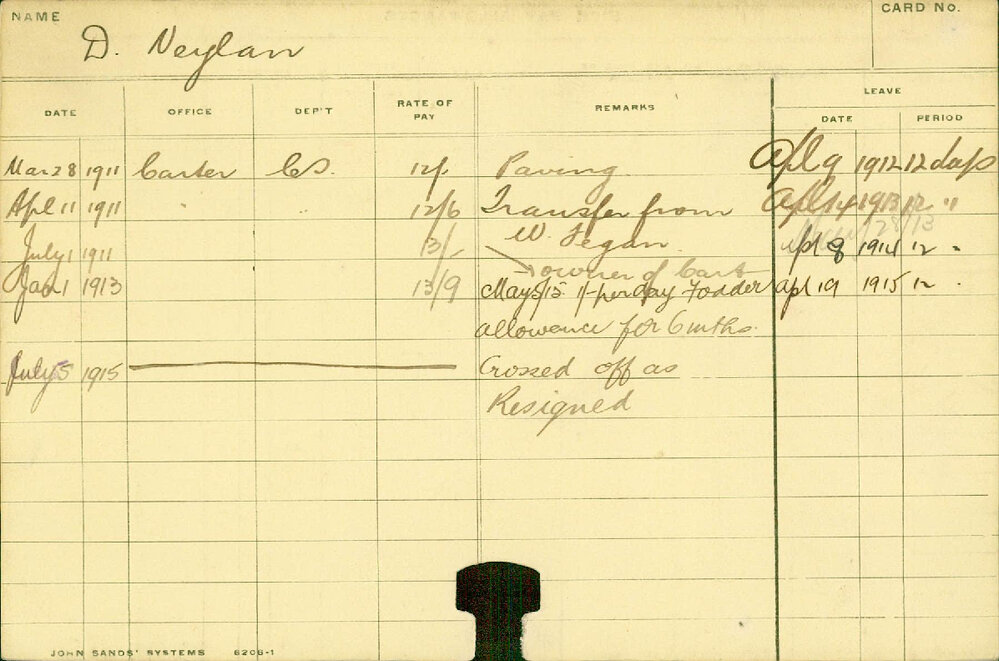 NAME
CARD No.
D. Neylan
LEAVE
DATE OFFICE DEP'T RATE OF PAY REMARKS DATE PERIOD
Mar 28 1911 Carter CS. 12/- Paving. Apl 9 1912 12 days
Apl 11 1911 " " 12/6 Transfer from Apl 14 1913 12 "
W. Fegan. 28/13
July 1 1911 13/- Apl 8 1914 12 "
owner of Cart
Jan 1 1913 13/9 May 5/15 1/- per day Fodder Apl 19 1915 12 "
allowence for 6 mths.
July 5 1915 Crossed off as
Resigned
JOHN SANDS' SYSTEMS 6206-1